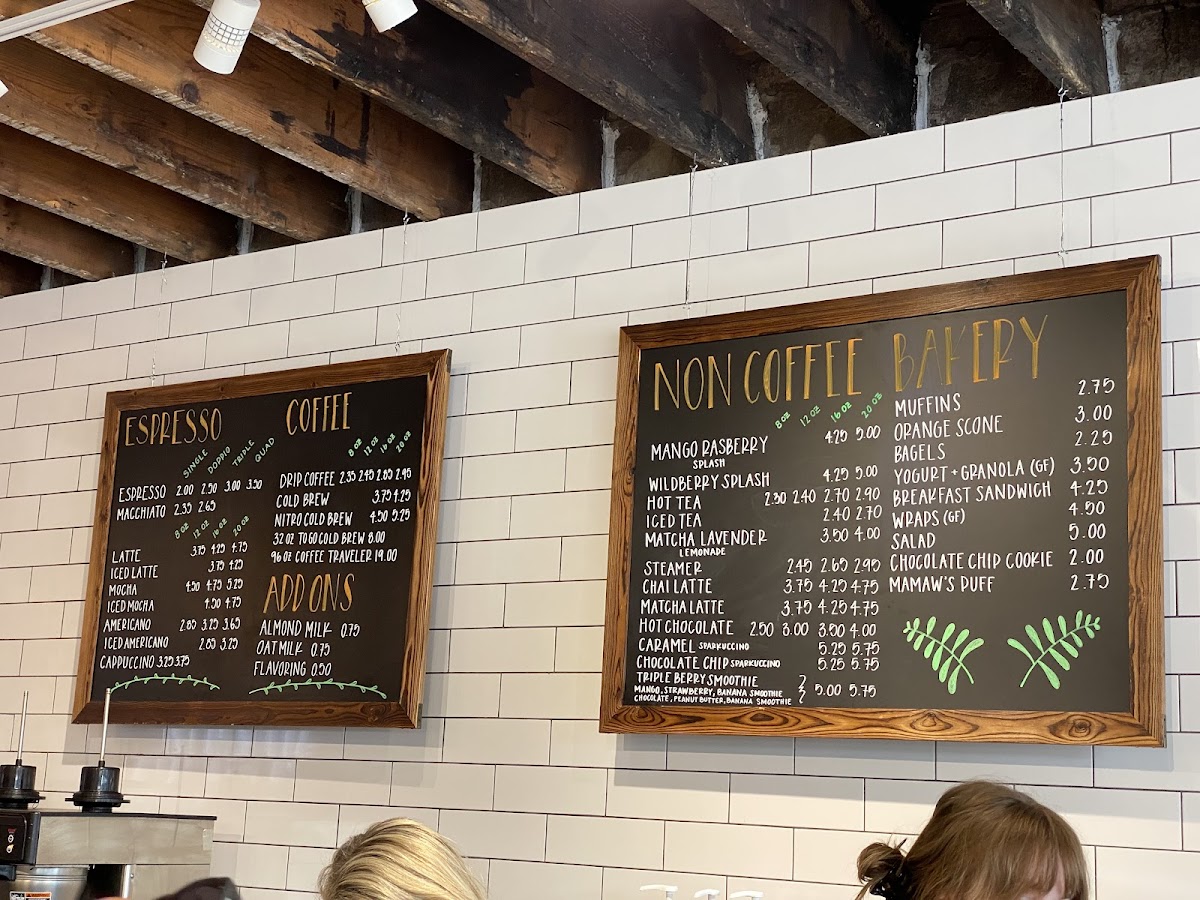 ESPRESSO
SINGLE DOPPIO TRIPLE QUAD
ESPRESSO 2.00 2.50 3.00 3.50
MACCHIATO 2.35 2.65
8 OZ 12 OZ 16 OZ 20 OZ
LATTE 3.75 4.25 4.75
ICED LATTE 3.75 4.25
MOCHA 4.50 4.75 5.25
ICED MOCHA 4.50 4.75
AMERICANO 2.85 3.25 3.65
ICED AMERICANO 2.85 3.25
CAPPUCCINO 3.25 3.75
COFFEE
8 OZ 12 OZ 16 OZ 20 OZ
DRIP COFFEE 2.35 2.45 2.85 2.95
COLD BREW 3.75 4.25
NITRO COLD BREW 4.50 5.25
32 OZ TO GO COLD BREW 8.00
96 OZ COFFEE TRAVELER 19.00
ADD ONS
ALMOND MILK 0.75
OAT MILK 0.75
FLAVORING 0.50
NON COFFEE
8 OZ 12 OZ 16 OZ 20 OZ
MANGO RASBERRY 4.25 5.00
SPLASH
WILDBERRY SPLASH 4.25 5.00
HOT TEA 2.30 2.40 2.70 2.90
ICED TEA 2.40 2.70
MATCHA LAVENDER 3.50 4.00
LEMONADE
STEAMER 2.45 2.65 2.95
CHAI LATTE 3.75 4.25 4.75
MATCHA LATTE 3.75 4.25 4.75
HOT CHOCOLATE 2.50 3.00 3.50 4.00
CARAMEL SPARKUCCINO 5.25 5.75
CHOCOLATE CHIP SPARKUCCINO 5.25 5.75
TRIPLE BERRY SMOOTHIE
MANGO, STRAWBERRY, BANANA SMOOTHIE 5.00 5.75
CHOCOLATE, PEANUT BUTTER, BANANA SMOOTHIE
BAKERY
MUFFINS 2.75
ORANGE SCONE 3.00
BAGELS 2.25
YOGURT + GRANOLA (GF) 3.50
BREAKFAST SANDWICH 4.25
WRAPS (GF) 4.50
SALAD 5.00
CHOCOLATE CHIP COOKIE 2.00
MAMAW'S PUFF 2.75